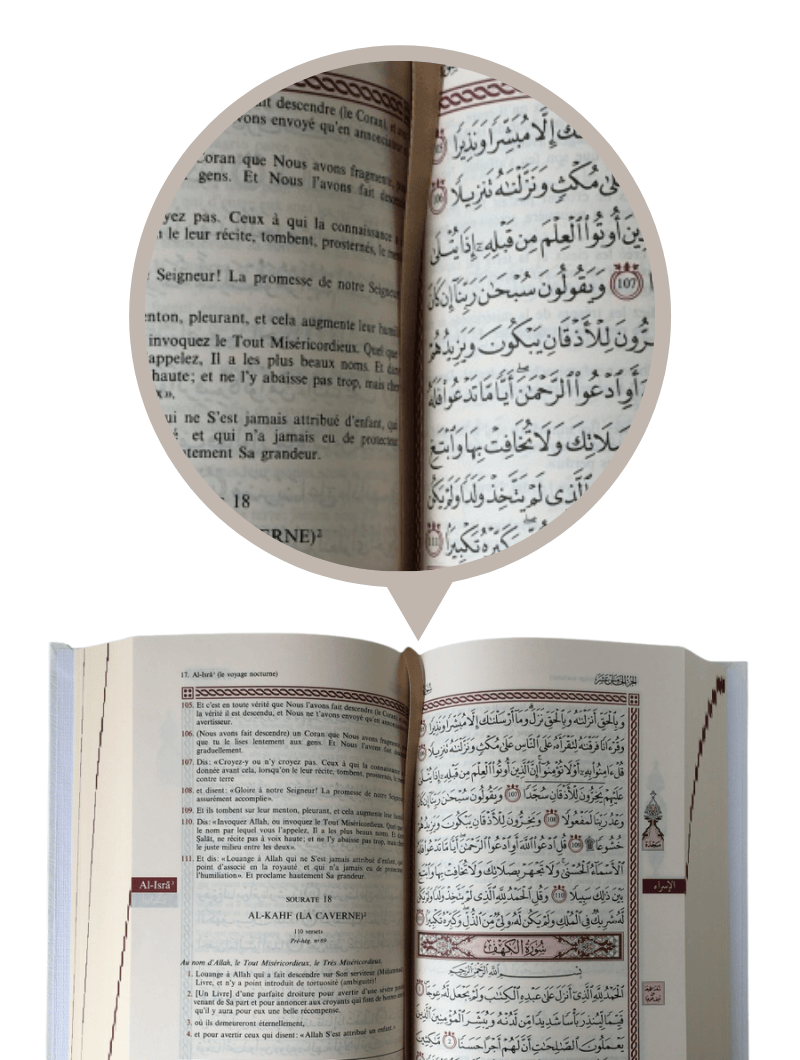 it descendre (le Coran), et
vons envoyé qu'en annonciateur
Coran que Nous avons fragmenté,
gens. Et Nous l'avons fait
yez pas. Ceux à qui la connaissance
le leur récite, tombent, prosternés, le
Seigneur! La promesse de notre Seigneur
enton, pleurant, et cela augmente leur
invoquez le Tout Miséricordieux. Quel que
appelez, Il a les plus beaux noms. Et dans
haute; et ne l'y abaisse pas trop, mais
x».
ui ne S'est jamais attribué d'enfant, qui
et qui n'a jamais eu de protecteur
tement Sa grandeur.
18
ERNE)²
إِلَّا مُبَشِّرًا وَنَذِيرًا
عَلَىٰ مُكْثٍ وَنَزَّلْنَٰهُ تَنزِيلًا 106
ينَ أُوتُوا۟ ٱلْعِلْمَ مِن قَبْلِهِۦٓ إِذَا يُتْلَىٰ
107 وَيَقُولُونَ سُبْحَٰنَ رَبِّنَآ إِن كَانَ
رُّونَ لِلْأَذْقَانِ يَبْكُونَ وَيَزِيدُهُمْ
أَوِ ٱدْعُوا۟ ٱلرَّحْمَٰنَ أَيًّا مَّا تَدْعُوا۟ فَلَهُ
صَلَاتِكَ وَلَا تُخَافِتْ بِهَا وَٱبْتَغِ
ٱلَّذِى لَمْ يَتَّخِذْ وَلَدًا وَلَمْ يَكُن
وَكَبِّرْهُ تَكْبِيرًا 111
17. Al-Isrā' (le voyage nocturne)
105. Et c'est en toute vérité que Nous l'avons fait descendre (le Coran), et
la vérité il est descendu, et Nous ne t'avons envoyé qu'en annonciateur
avertisseur.
106. (Nous avons fait descendre) un Coran que Nous avons fragmenté,
que tu le lises lentement aux gens. Et Nous l'avons fait
graduellement.
107. Dis: «Croyez-y ou n'y croyez pas. Ceux à qui la connaissance a
donnée avant cela, lorsqu'on le leur récite, tombent, prosternés, le
contre terre
108. et disent: «Gloire à notre Seigneur! La promesse de notre Seigneur
assurément accomplie».
109. Et ils tombent sur leur menton, pleurant, et cela augmente leur
110. Dis: «Invoquez Allah, ou invoquez le Tout Miséricordieux. Quel que
le nom par lequel vous l'appelez, Il a les plus beaux noms. Et dans
Salāt, ne récite pas à voix haute; et ne l'y abaisse pas trop, mais
le juste milieu entre les deux».
111. Et dis: «Louange à Allah qui ne S'est jamais attribué d'enfant, qui
point d'associé en la royauté et qui n'a jamais eu de protecteur
l'humiliation». Et proclame hautement Sa grandeur.
Al-Isrā'
SOURATE 18
AL-KAHF (LA CAVERNE)²
110 versets
Pré-hég. n° 69
Au nom d'Allah, le Tout Miséricordieux, le Très Miséricordieux.
1. Louange à Allah qui a fait descendre sur Son serviteur
Livre, et n'y a point introduit de tortuosité (ambiguïté)!
2. [Un Livre] d'une parfaite droiture pour avertir d'une sévère
venant de Sa part et pour annoncer aux croyants qui font de bonnes
qu'il y aura pour eux une belle récompense.
3. où ils demeureront éternellement,
4. et pour avertir ceux qui disent: «Allah S'est attribué un enfant.»
وَبِٱلْحَقِّ أَنزَلْنَٰهُ وَبِٱلْحَقِّ نَزَلَ وَمَآ أَرْسَلْنَٰكَ إِلَّا مُبَشِّرًا وَنَذِيرًا
وَقُرْءَانًا فَرَقْنَٰهُ لِتَقْرَأَهُۥ عَلَى ٱلنَّاسِ عَلَىٰ مُكْثٍ وَنَزَّلْنَٰهُ تَنزِيلًا
قُلْ ءَامِنُوا۟ بِهِۦٓ أَوْ لَا تُؤْمِنُوٓا۟ إِنَّ ٱلَّذِينَ أُوتُوا۟ ٱلْعِلْمَ مِن قَبْلِهِۦٓ إِذَا يُتْلَىٰ
عَلَيْهِمْ يَخِرُّونَ لِلْأَذْقَانِ سُجَّدًا 107 وَيَقُولُونَ سُبْحَٰنَ رَبِّنَآ إِن كَانَ
وَعْدُ رَبِّنَا لَمَفْعُولًا 108 وَيَخِرُّونَ لِلْأَذْقَانِ يَبْكُونَ وَيَزِيدُهُمْ
خُشُوعًا 109 قُلِ ٱدْعُوا۟ ٱللَّهَ أَوِ ٱدْعُوا۟ ٱلرَّحْمَٰنَ أَيًّا مَّا تَدْعُوا۟ فَلَهُ
ٱلْأَسْمَآءُ ٱلْحُسْنَىٰ وَلَا تَجْهَرْ بِصَلَاتِكَ وَلَا تُخَافِتْ بِهَا وَٱبْتَغِ
بَيْنَ ذَٰلِكَ سَبِيلًا 110 وَقُلِ ٱلْحَمْدُ لِلَّهِ ٱلَّذِى لَمْ يَتَّخِذْ وَلَدًا وَلَمْ يَكُن
لَّهُۥ شَرِيكٌ فِى ٱلْمُلْكِ وَلَمْ يَكُن لَّهُۥ وَلِىٌّ مِّنَ ٱلذُّلِّ وَكَبِّرْهُ تَكْبِيرًا
سُورَةُ الْكَهْفِ
بِسْمِ ٱللَّهِ ٱلرَّحْمَٰنِ ٱلرَّحِيمِ
ٱلْحَمْدُ لِلَّهِ ٱلَّذِىٓ أَنزَلَ عَلَىٰ عَبْدِهِ ٱلْكِتَٰبَ وَلَمْ يَجْعَل لَّهُۥ عِوَجَا
قَيِّمًا لِّيُنذِرَ بَأْسًا شَدِيدًا مِّن لَّدُنْهُ وَيُبَشِّرَ ٱلْمُؤْمِنِينَ ٱلَّذِينَ
يَعْمَلُونَ ٱلصَّٰلِحَٰتِ أَنَّ لَهُمْ أَجْرًا حَسَنًا 2 مَّٰكِثِينَ
سَجْدَة
الإسراء